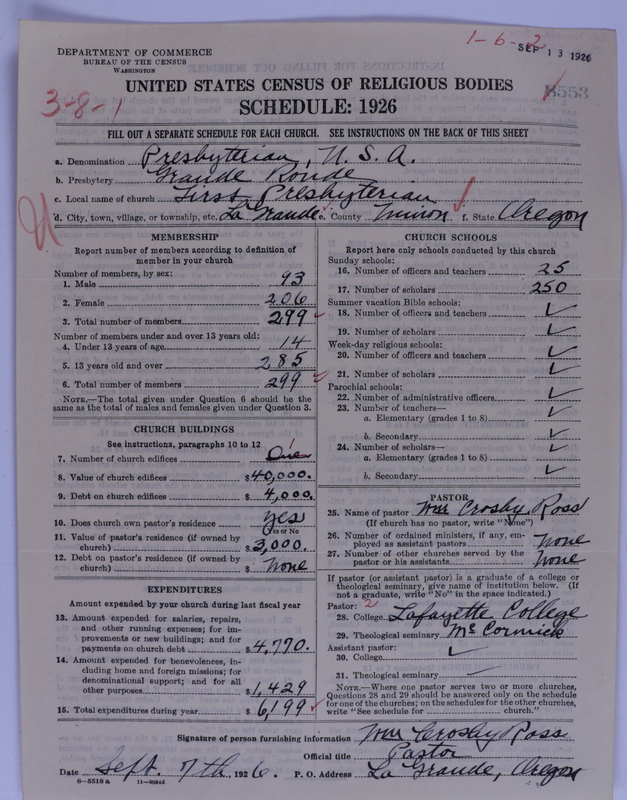 DEPARTMENT OF COMMERCE
BUREAU OF THE CENSUS
WASHINGTON
1-6-2
SEP 13 1926
8553
UNITED STATES CENSUS OF RELIGIOUS BODIES
3-8-1
SCHEDULE: 1926
FILL OUT A SEPARATE SCHEDULE FOR EACH CHURCH. SEE INSTRUCTIONS ON THE BACK OF THIS SHEET
a. Denomination Presbyterian, U. S. A.
b. Presbytery Grande Ronde
c. Local name of church First Presbyterian
d. City, town, village, or township, etc. La Grande e. County Union f. State Oregon
MEMBERSHIP
Report number of members according to definition of
member in your church
Number of members, by sex:
1. Male 93
2. Female 206
3. Total number of members 299
Number of members under and over 13 years old:
4. Under 13 years of age 14
5. 13 years old and over 285
6. Total number of members 299
NOTE.—The total given under Question 6 should be the
same as the total of males and females given under Question 3.
CHURCH BUILDINGS
See instructions, paragraphs 10 to 12
7. Number of church edifices One
8. Value of church edifices $40,000.
9. Debt on church edifices $4,000.
10. Does church own pastor's residence yes
Yes or No
11. Value of pastor's residence (if owned by
church) $3,000.
12. Debt on pastor's residence (if owned by
church) $ none
EXPENDITURES
Amount expended by your church during last fiscal year
13. Amount expended for salaries, repairs,
and other running expenses; for im-
provements or new buildings; and for
payments on church debt $4,770.
14. Amount expended for benevolences, in-
cluding home and foreign missions; for
denominational support; and for all
other purposes $1,429
15. Total expenditures during year $6,199
CHURCH SCHOOLS
Report here only schools conducted by this church
Sunday schools:
16. Number of officers and teachers 25
17. Number of scholars 250
Summer vacation Bible schools:
18. Number of officers and teachers ✓
19. Number of scholars ✓
Week-day religious schools:
20. Number of officers and teachers ✓
21. Number of scholars ✓
Parochial schools:
22. Number of administrative officers ✓
23. Number of teachers—
a. Elementary (grades 1 to 8) ✓
b. Secondary ✓
24. Number of scholars—
a. Elementary (grades 1 to 8) ✓
b. Secondary ✓
PASTOR
25. Name of pastor Wm Crosby Ross
(If church has no pastor, write "None")
26. Number of ordained ministers, if any, em-
ployed as assistant pastors none
27. Number of other churches served by the
pastor or his assistants none
If pastor (or assistant pastor) is a graduate of a college or
theological seminary, give name of institution below. (If
not a graduate, write "No" in the space indicated.)
Pastor: 2
28. College Lafayette College
29. Theological seminary McCormick
Assistant pastor:
30. College ✓
31. Theological seminary
NOTE.—Where one pastor serves two or more churches,
Questions 28 and 29 should be answered only on the schedule
for one of the churches; on the schedules for the other churches,
write "See schedule for church."
Signature of person furnishing information Wm Crosby Ross
Official title Pastor
Date Sept. 7th, 1926. P. O. Address La Grande, Oregon
8-5518 a